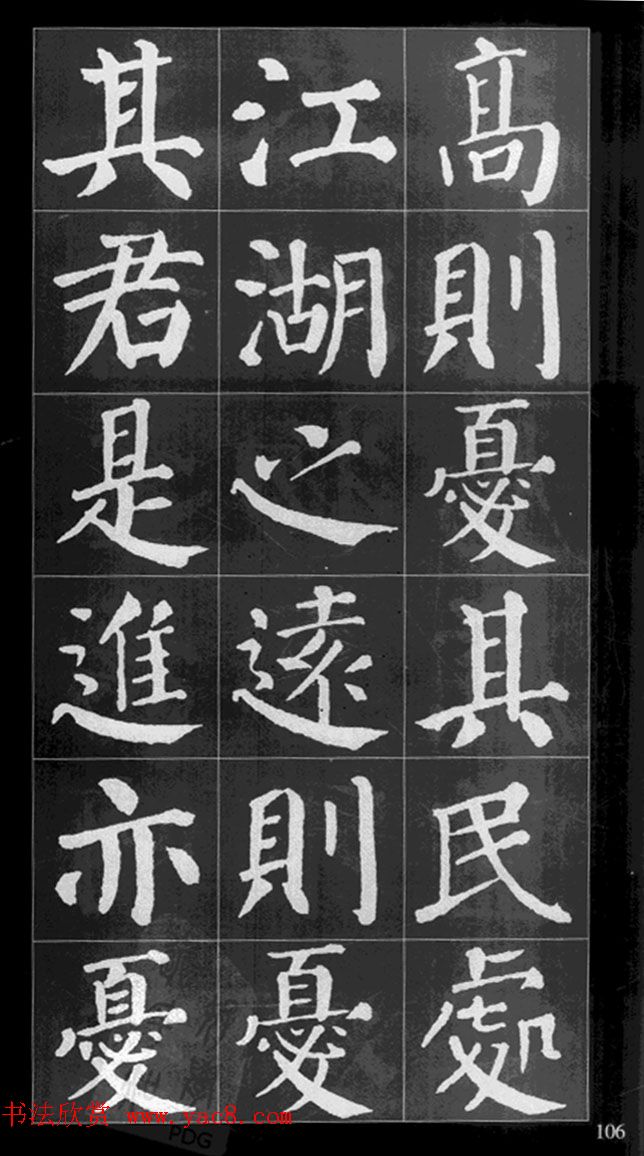 高則憂其民處
江湖之遠則憂
其君是進亦憂
书法欣赏 www.yac8.com
PDG
106